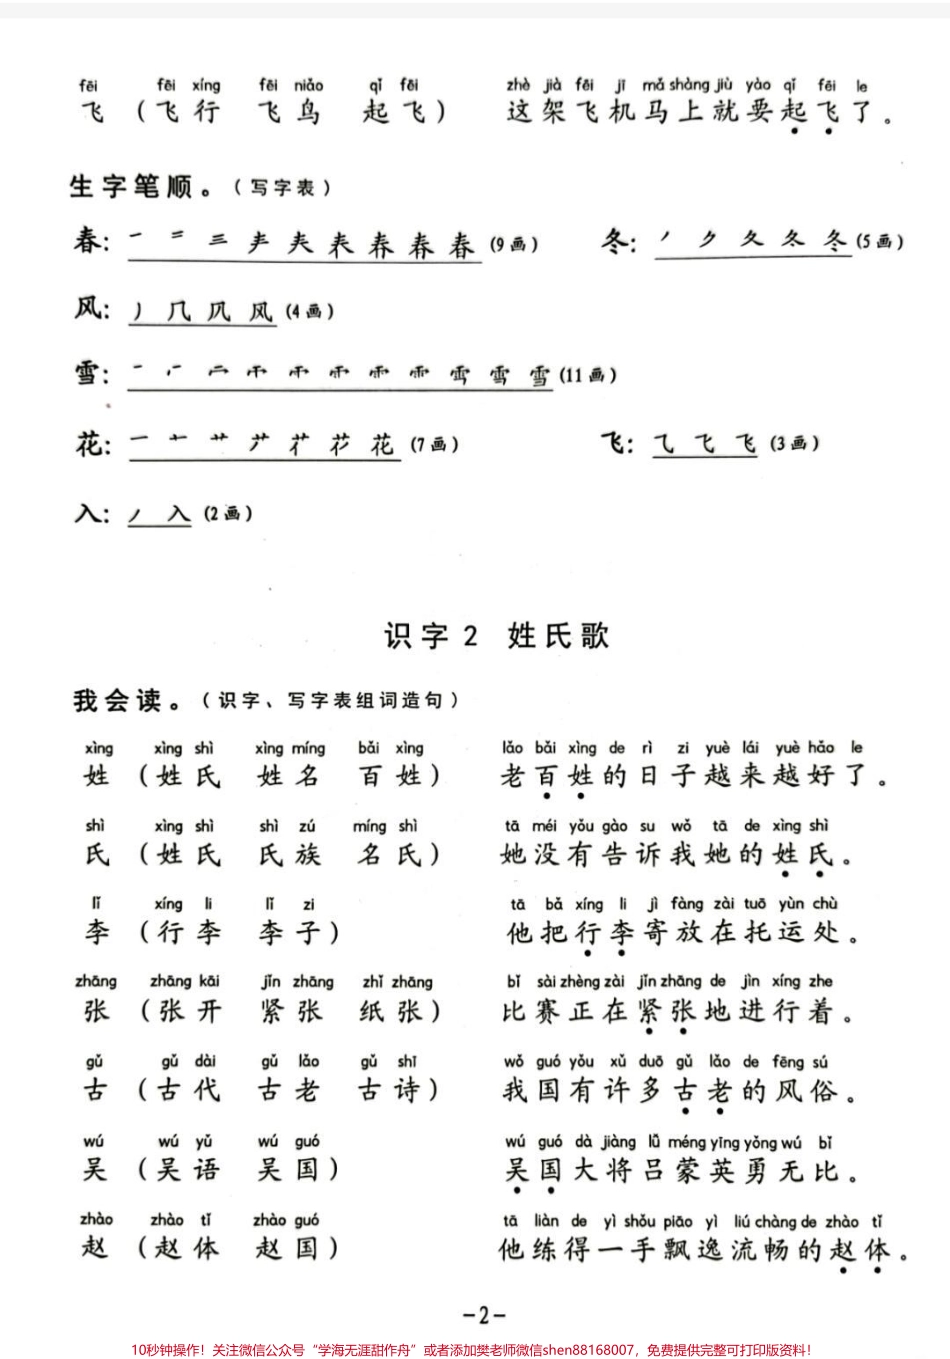 fēi fēi xíng fēi niǎo qǐ fēi zhè jià fēi jī mǎ shàng jiù yào qǐ fēi le
飞（飞行 飞鸟 起飞） 这架飞机马上就要起飞了。
生字笔顺。（写字表）
春： (9画) 冬： (5画)
风： (4画)
雪： (11画)
花： (7画) 飞： (3画)
入： (2画)
识字2 姓氏歌
我会读。（识字、写字表组词造句）
xìng xìng shì xìng míng bǎi xìng lǎo bǎi xìng de rì zi yuè lái yuè hǎo le
姓（姓氏 姓名 百姓） 老百姓的日子越来越好了。
shì xìng shì shì zú míng shì tā méi yǒu gào su wǒ tā de xìng shì
氏（姓氏 氏族 名氏） 她没有告诉我她的姓氏。
lǐ xíng li lǐ zi tā bǎ xíng li jì fàng zài tuō yùn chù
李（行李 李子） 他把行李寄放在托运处。
zhāng zhāng kāi jǐn zhāng zhǐ zhāng bǐ sài zhèng zài jǐn zhāng de jìn xíng zhe
张（张开 紧张 纸张） 比赛正在紧张地进行着。
gǔ gǔ dài gǔ lǎo gǔ shī wǒ guó yǒu xǔ duō gǔ lǎo de fēng sú
古（古代 古老 古诗） 我国有许多古老的风俗。
wú wú yǔ wú guó wú guó dà jiàng lǚ méng yīng yǒng wú bǐ
吴（吴语 吴国） 吴国大将吕蒙英勇无比。
zhào zhào tǐ zhào guó tā liàn de yì shǒu piāo yì liú chàng de zhào tǐ
赵（赵体 赵国） 他练得一手飘逸流畅的赵体。
-2-
10秒钟操作！关注微信公众号“学海无涯甜作舟”或者添加樊老师微信shen88168007，免费提供完整可打印版资料！